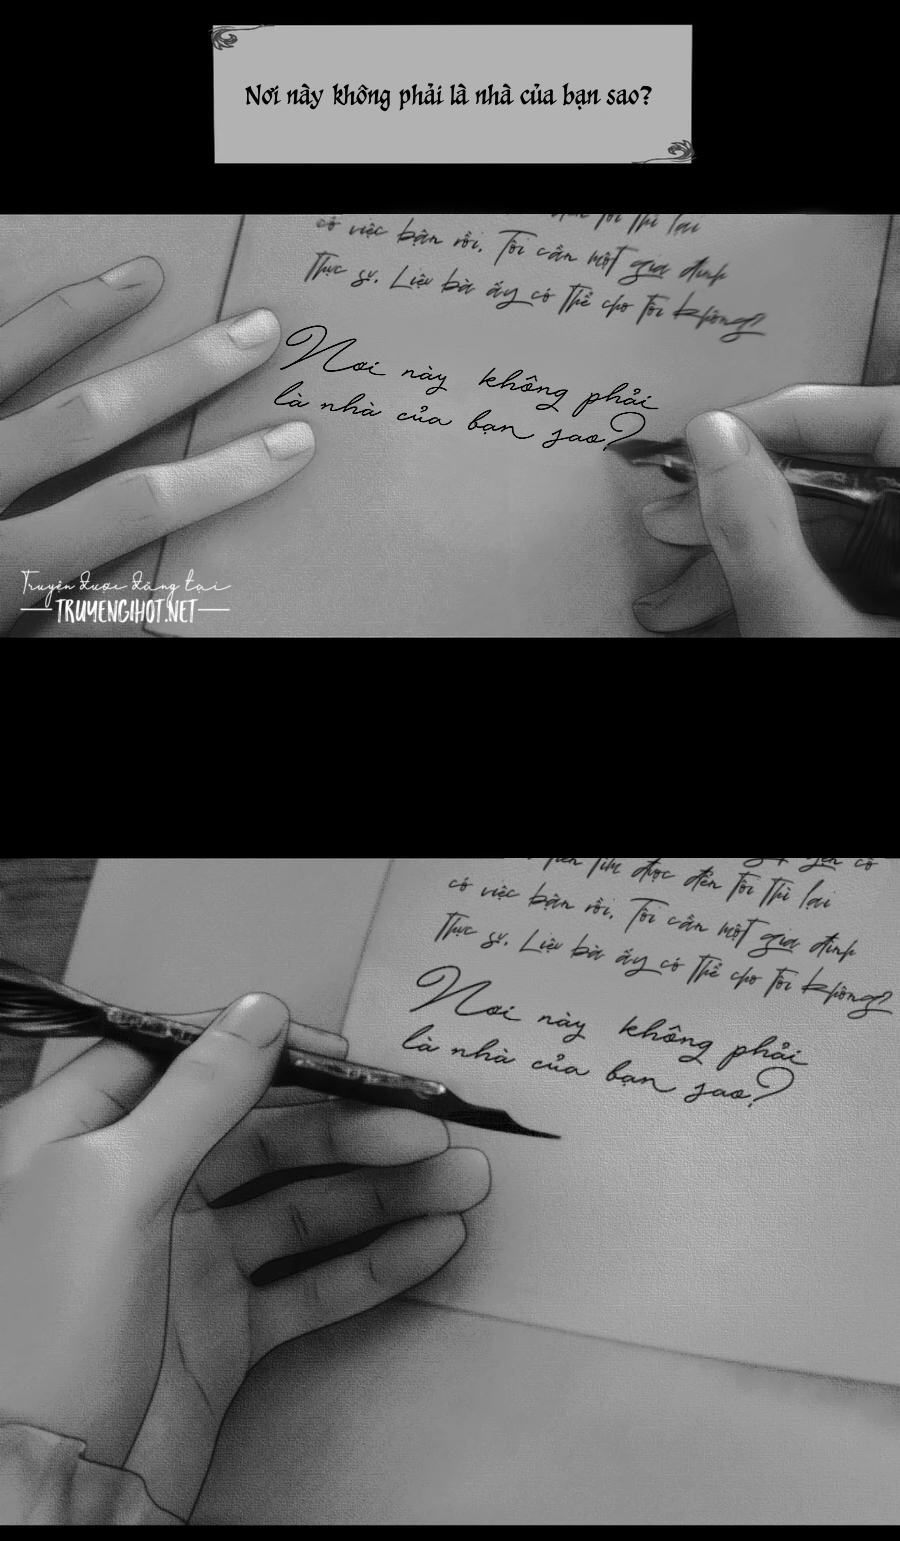 Nơi này không phải là nhà của bạn sao?
đến tôi thì lại
có việc bận rồi. Tôi cần một gia đình
thực sự. Liệu bà ấy có thể cho tôi không?
Nơi này không phải
là nhà của bạn sao?
Truyện được đăng tại
TRUYENGIHOT.NET
tìm được đến tôi thì lại
có việc bận rồi. Tôi cần một gia đình
thực sự. Liệu bà ấy có thể cho tôi không?
Nơi này không phải
là nhà của bạn sao?